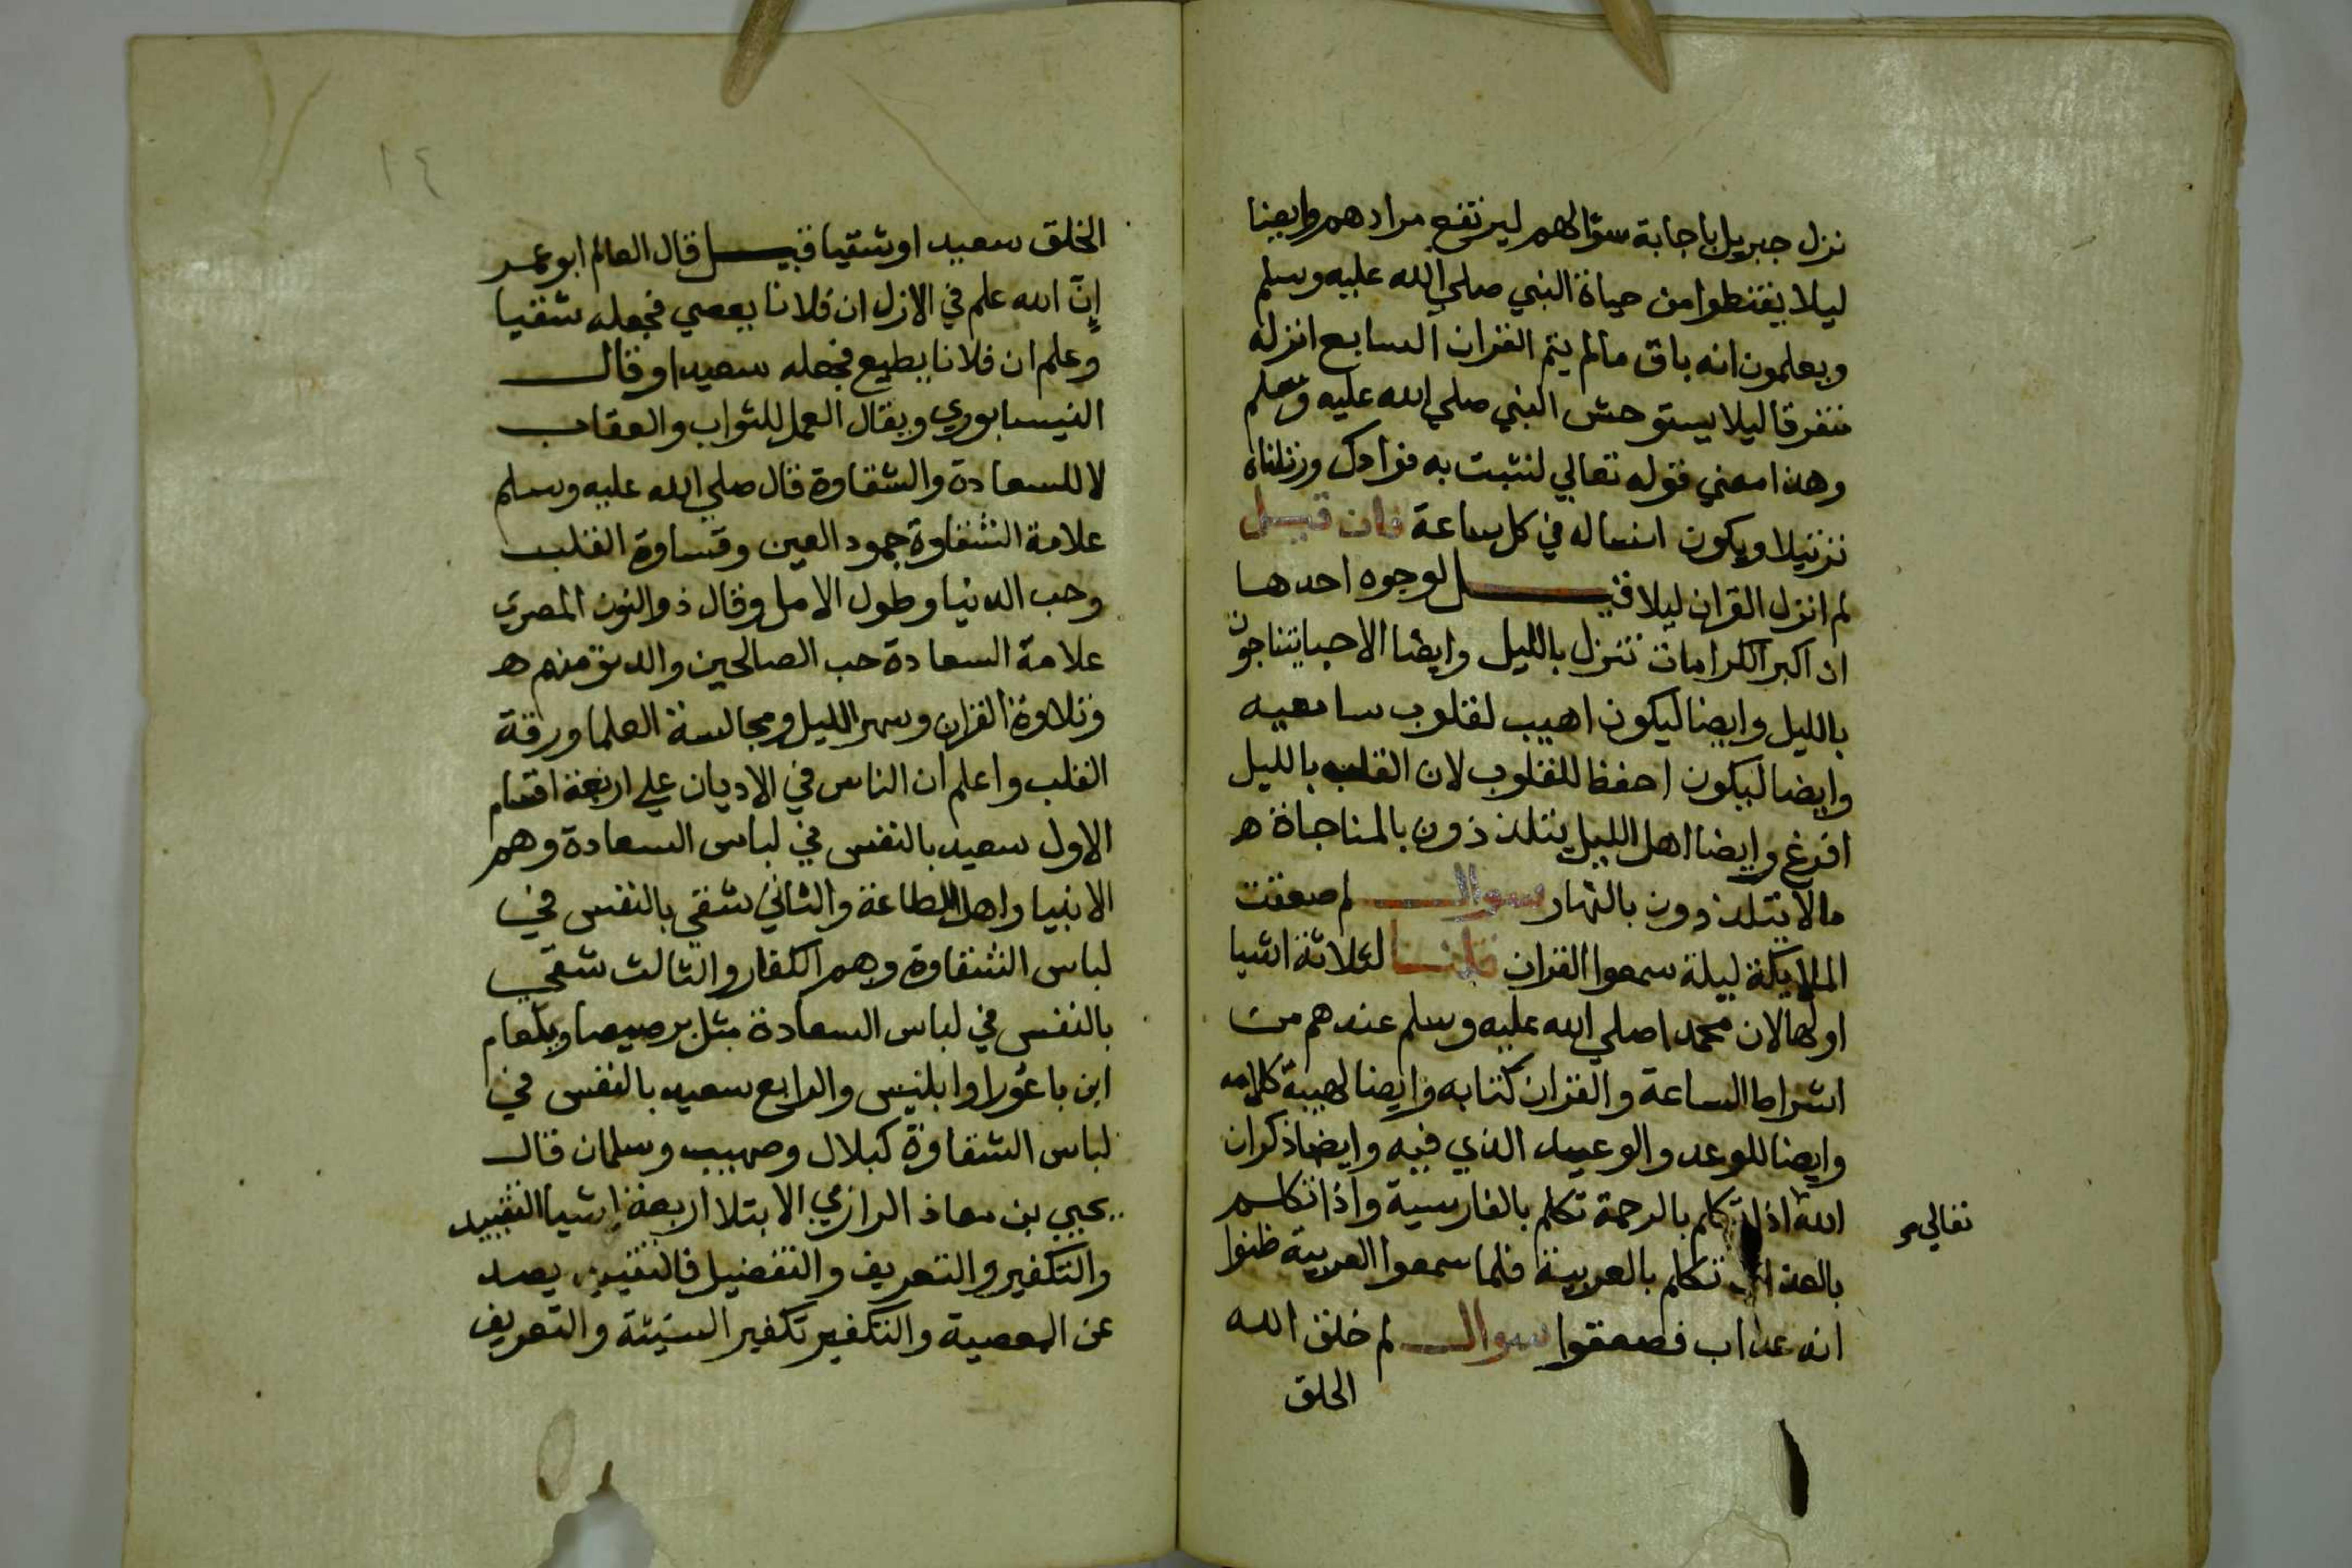 نزل جبريل باجابة سؤالهم ليرتفع مرادهم وايضا
ليلا يقنطوا من حياة النبي صلي الله عليه وسلم
ويعلمون انه باق مالم يتم القران السابع انزله
متفرقا ليلا يستوحش النبي صلي الله عليه وسلم
وهذا معني قوله تعالي لنثبت به فوادك ورتلناه
ترتيلا ويكون انساله في كل ساعة فان قيل
لم انزل القران ليلا قيل لوجوه احدها
ان اكبر الكرامات تنزل بالليل وايضا الاحبا يتناجون
بالليل وايضا ليكون اهيب لقلوب سامعيه
وايضا ليكون احفظ للقلوب لان القلب بالليل
افرغ وايضا اهل الليل يتلذذون بالمناجاة ه
مالا يتلذذون بالنهار سوال لم صعقت
الملايكة ليلة سمعوا القران قلنا لثلاثة اشيا
اولها لان محمدا صلي الله عليه وسلم عندهم من
اشراط الساعة والقران كتابه وايضا لهيبة كلامه
وايضا للوعد والوعيد الذي فيه وايضا ذكر ان
الله اذا تكلم بالرحمة تكلم بالفارسية واذا تكلم
تعالي
بالعذاب تكلم بالعربية فلما سمعوا العربية ظنوا
انه عذاب فصعقوا سوال لم خلق الله
الخلق
١٤
الخلق سعيدا وشقيا قيل قال العالم ابو عمر
إنّ الله علم في الازل ان فلانا يعصي فجعله شقيا
وعلم ان فلانا يطيع فجعله سعيدا وقال
النيسابوري ويقال العمل للثواب والعقاب
لا للسعادة والشقاوة قال صلي الله عليه وسلم
علامة الشقاوة جمود العين وقساوة القلب
وحب الدنيا وطول الامل وقال ذو النون المصري
علامة السعادة حب الصالحين والدنو منهم ه
وتلاوة القران وسهر الليل ومجالسة العلما ورقة
القلب واعلم ان الناس في الاديان علي اربعة اقسام
الاول سعيد بالنفس في لباس السعادة وهم
الانبيا واهل الطاعة والثاني شقي بالنفس في
لباس الشقاوة وهم الكفار والثالث شقي
بالنفس في لباس السعادة مثل برصيصا وبلعام
ابن باعورا وابليس والرابع سعيد بالنفس في
لباس الشقاوة كبلال وصهيب وسلمان قال
يحيي بن معاذ الرازي الابتلا اربعة اشيا التقييد
والتكفير والتعريف والتفضيل فالتقييد يصد
عن المعصية والتكفير تكفير السيئة والتعريف